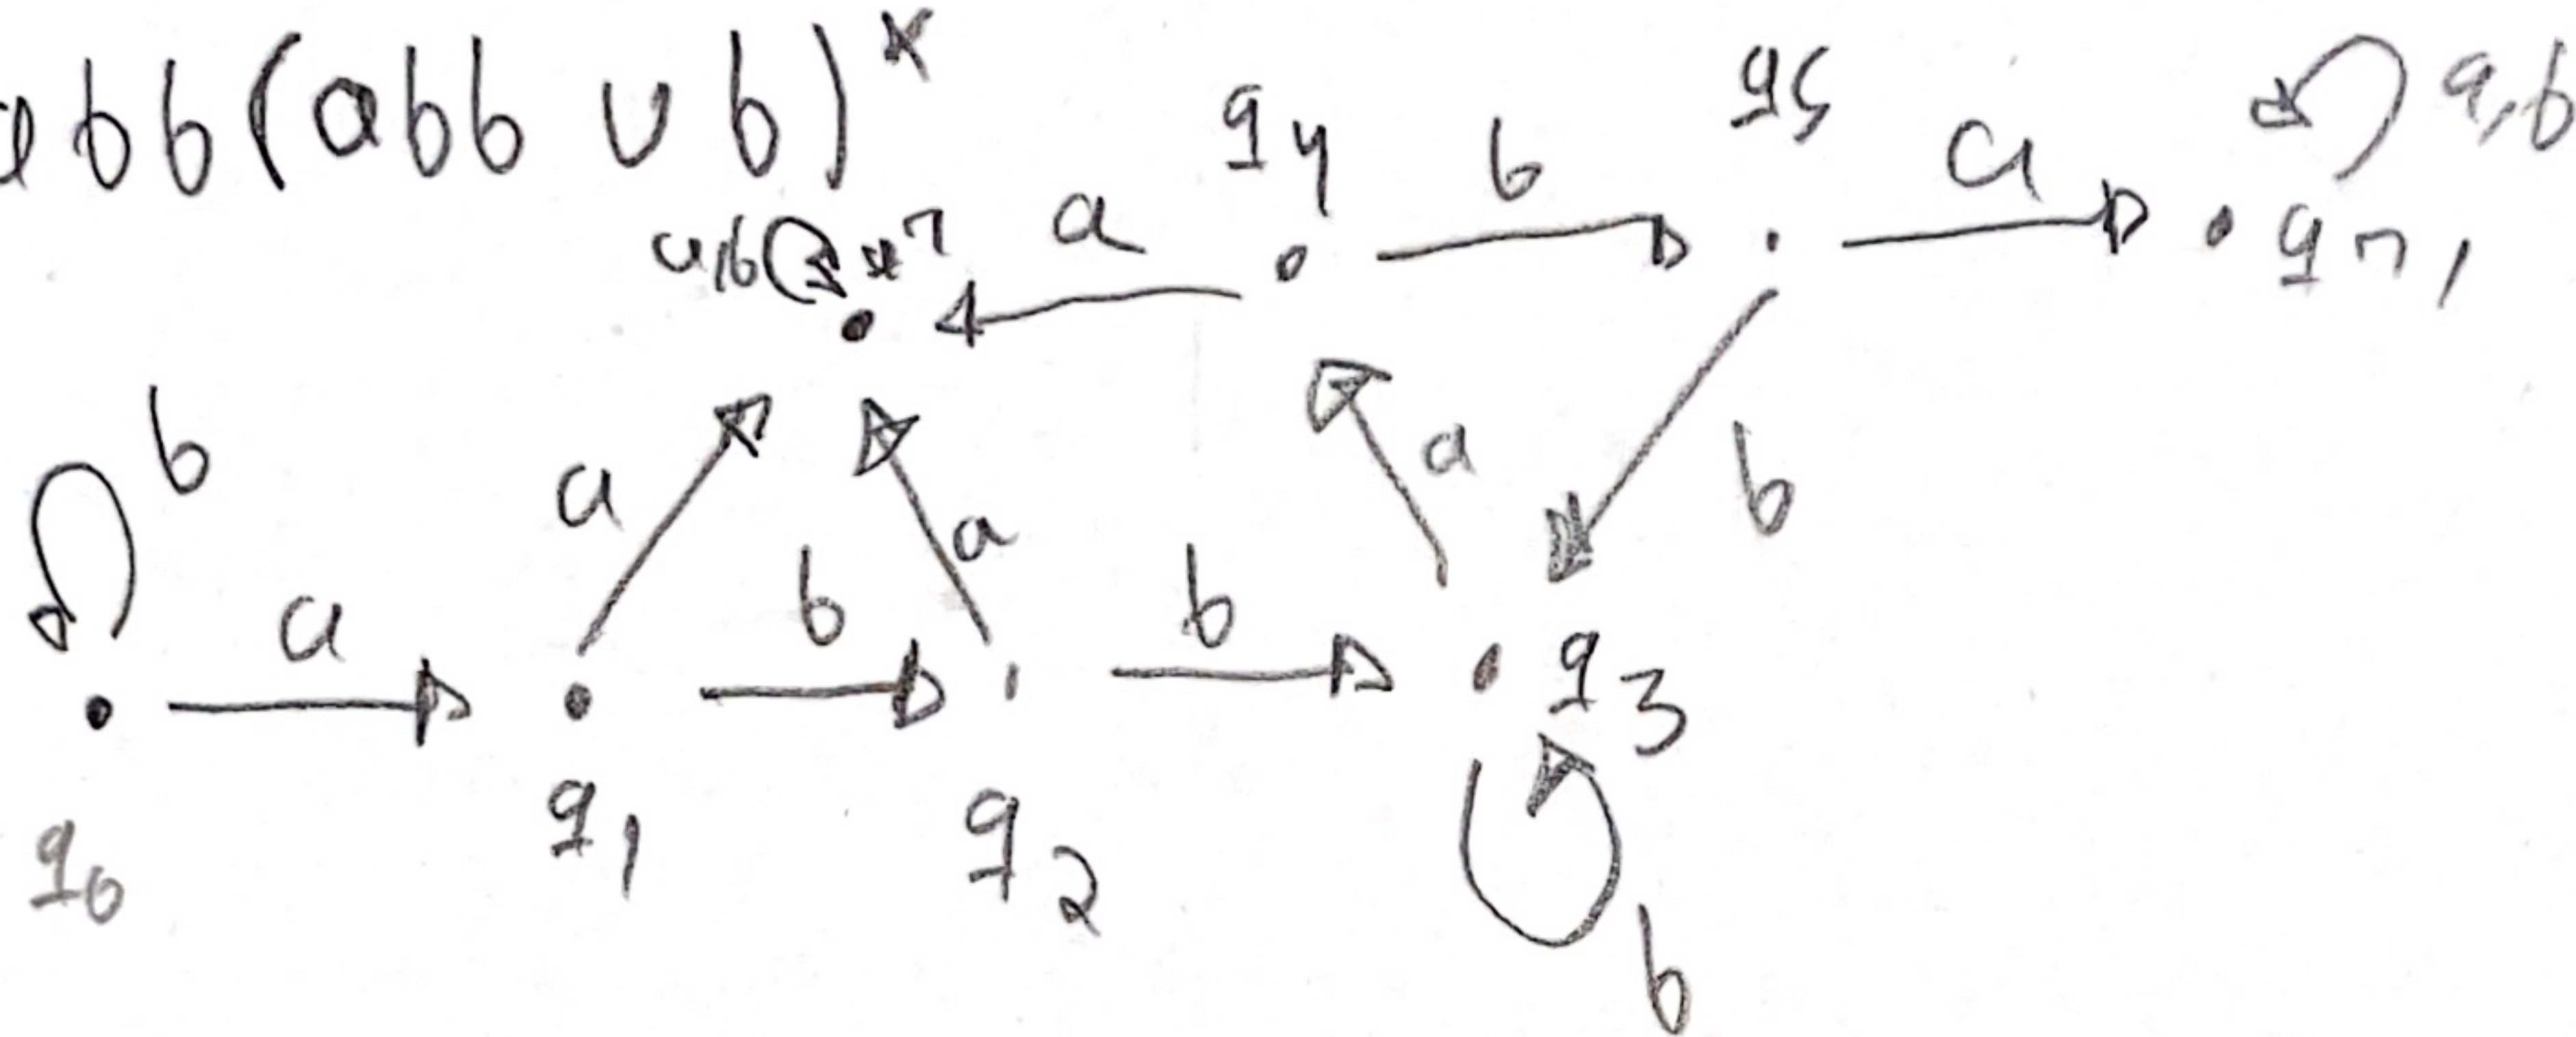 abb(abb ∪ b)*
q4 b q5 a a,b
a,b a q7
b a a b a b
a b b q3
q0 q1 q2
b